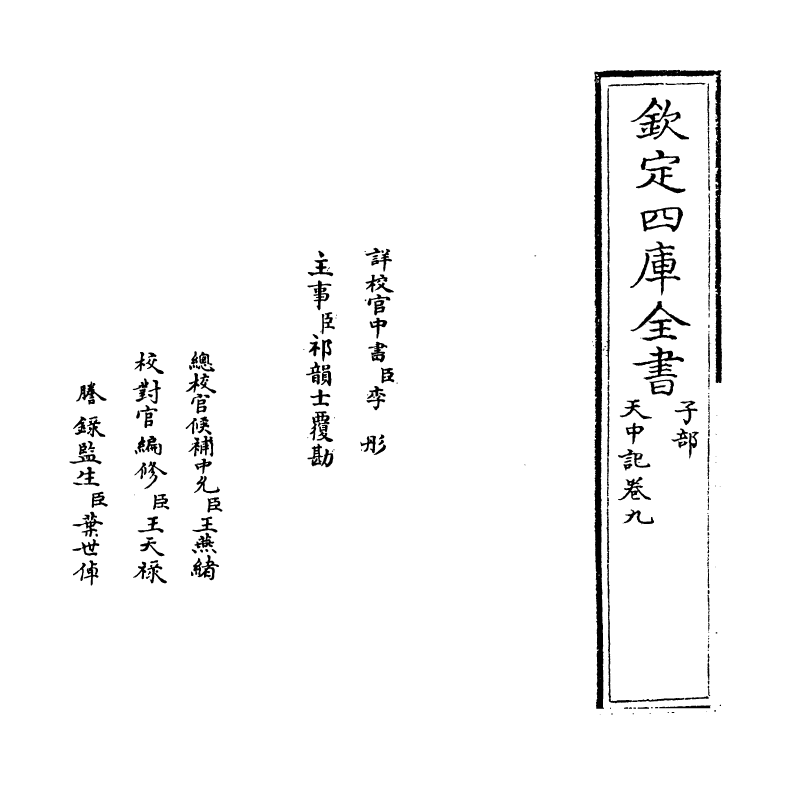 欽定四庫全書
子部
天中記卷九
詳校官中書臣李彤
主事臣祁韻士覆勘
總校官候補中允臣王燕緒
校對官編修臣王天祿
謄錄監生臣葉世倬